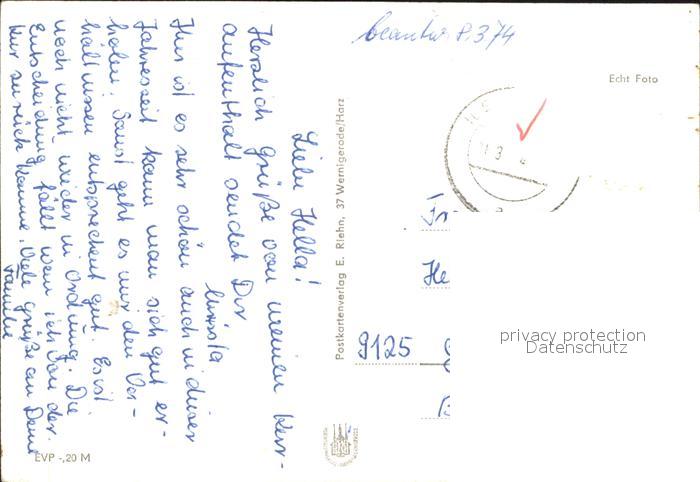 beantw. 8.3.74
Echt Foto
Liebe Hella!
Herzlich grüße von meinen Kur-
aufenthalt sendet Dir
Hier ist es sehr schön auch in dieser
Jahreszeit kann man sich gut er-
holen. Sonst geht es mir den Ver-
hältnissen entsprechent gut. Es ist
noch nicht wieder in Ordnung. Die
Entscheidung fällt wenn ich von der
Kur zurück komme. Viele grüße an Deine
Familie
Postkartenverlag E. Riehn, 37 Wernigerode/Harz
Fr
He
9125
B
privacy protection
Datenschutz
EVP -,20 M